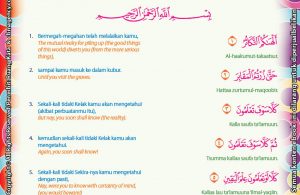 بِسْمِ اللَّهِ الرَّحْمَٰنِ الرَّحِيمِ
1. Bermegah-megahan telah melalaikan kamu,
The mutual rivalry for piling up (the good things
of this world) diverts you (from the more serious
things),
أَلْهَاكُمُ التَّكَاثُرُ
Al-haakumut-takaatsur.
2. sampai kamu masuk ke dalam kubur.
Until you visit the graves.
حَتَّىٰ زُرْتُمُ الْمَقَابِرَ
Hattaa zurtumul-maqoobir.
3. Sekali-kali tidak! Kelak kamu akan mengetahui
(akibat perbuatanmu itu),
But nay, you soon should know (the reality).
كَلَّا سَوْفَ تَعْلَمُونَ
Kallaa saufa ta'lamuun.
4. kemudian sekali-kali tidak! Kelak kamu akan
mengetahui.
Again, you soon shall know!
ثُمَّ كَلَّا سَوْفَ تَعْلَمُونَ
Tsumma kallaa saufa ta'lamuun.
5. Sekali-kali tidak! Sekira-nya kamu mengetahui
dengan pasti,
Nay, were you to know with certainty of mind,
(you would beware!)
كَلَّا لَوْ تَعْلَمُونَ عِلْمَ الْيَقِينِ
Kallaa lau ta'lamuuna 'ilmal-yaqiin.